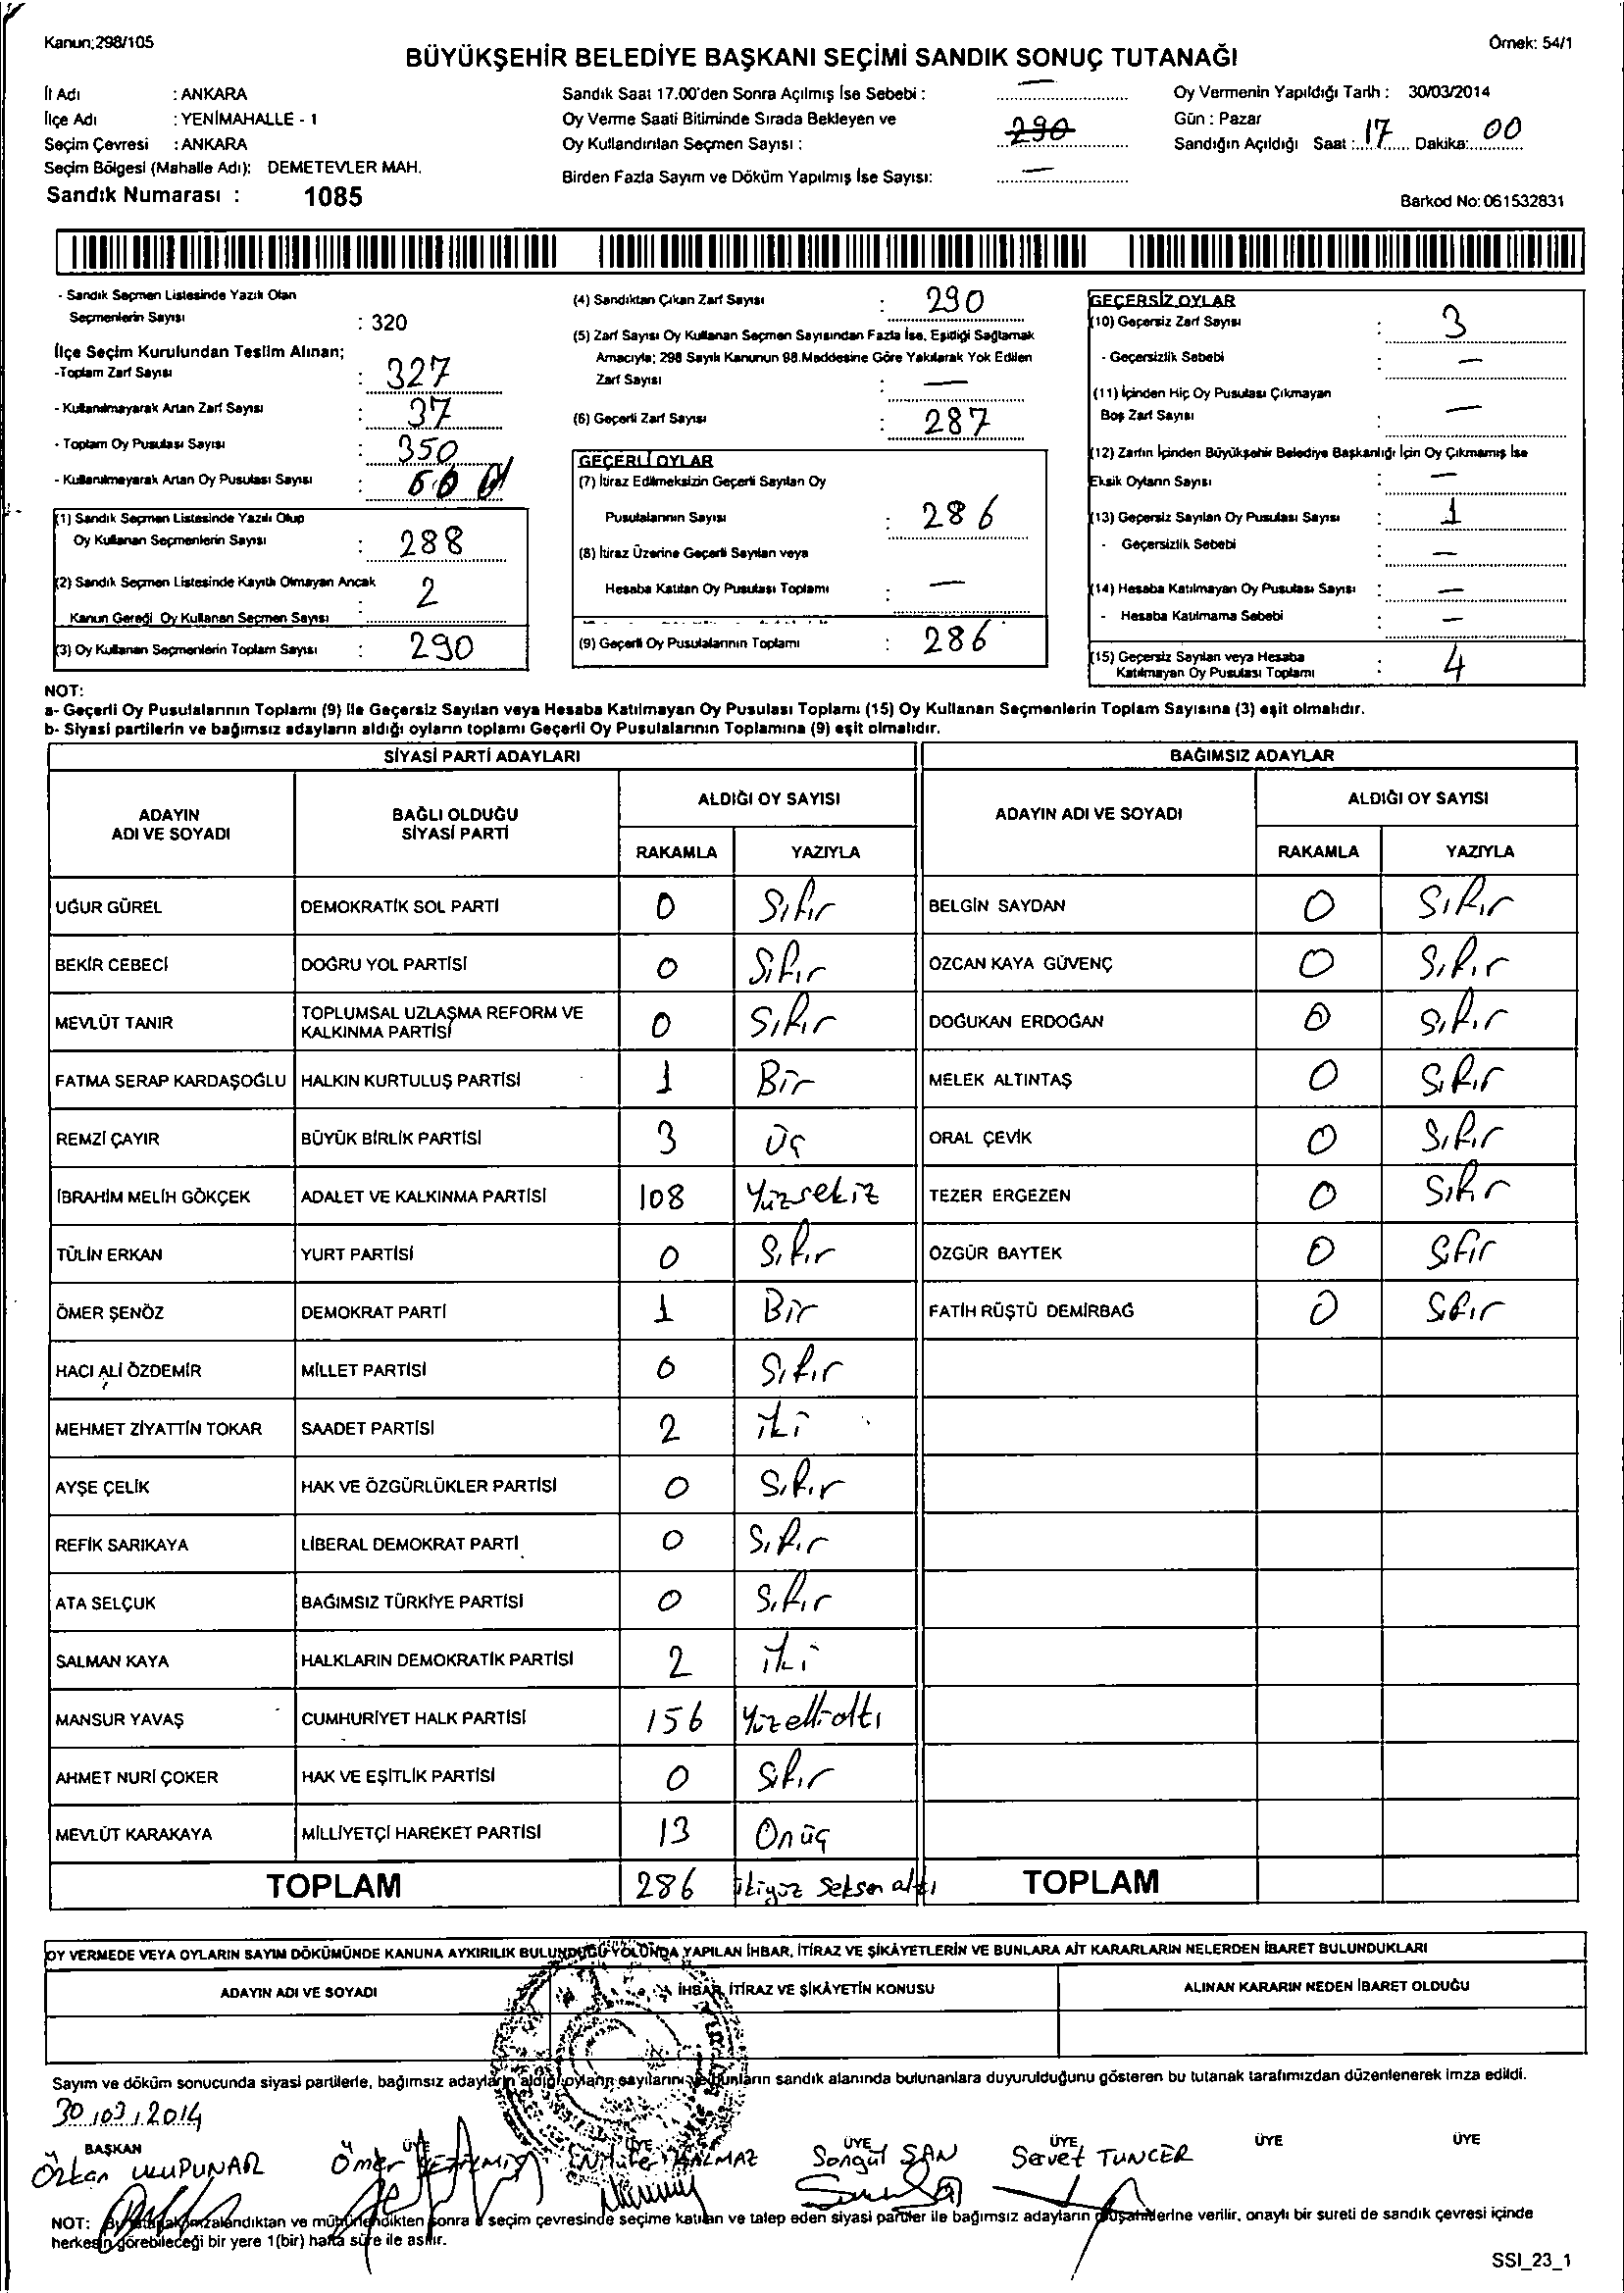 Kanun;298/105
Örnek: 54/1
BÜYÜKŞEHİR BELEDİYE BAŞKANI SEÇİMİ SANDIK SONUÇ TUTANAĞI
İl Adı : ANKARA
İlçe Adı : YENİMAHALLE - 1
Seçim Çevresi : ANKARA
Seçim Bölgesi (Mahalle Adı): DEMETEVLER MAH.
Sandık Numarası : 1085
Sandık Saat 17.00'den Sonra Açılmış İse Sebebi : —
Oy Verme Saati Bitiminde Sırada Bekleyen ve
Oy Kullandırılan Seçmen Sayısı : 290
Birden Fazla Sayım ve Döküm Yapılmış İse Sayısı: —
Oy Vermenin Yapıldığı Tarih : 30/03/2014
Gün : Pazar
Sandığın Açıldığı Saat : 17 Dakika: 00
Barkod No: 061532831
- Sandık Seçmen Listesinde Yazılı Olan
Seçmenlerin Sayısı : 320
İlçe Seçim Kurulundan Teslim Alınan;
-Toplam Zarf Sayısı : 327
- Kullanılmayarak Artan Zarf Sayısı : 37
- Toplam Oy Pusulası Sayısı : 350
- Kullanılmayarak Artan Oy Pusulası Sayısı :
(1) Sandık Seçmen Listesinde Yazılı Olup
Oy Kullanan Seçmenlerin Sayısı : 288
(2) Sandık Seçmen Listesinde Kayıtlı Olmayan Ancak
Kanun Gereği Oy Kullanan Seçmen Sayısı : 2
(3) Oy Kullanan Seçmenlerin Toplam Sayısı : 290
(4) Sandıktan Çıkan Zarf Sayısı : 290
(5) Zarf Sayısı Oy Kullanan Seçmen Sayısından Fazla İse, Eşitliği Sağlamak
Amacıyla; 298 Sayılı Kanunun 98.Maddesine Göre Yakılarak Yok Edilen
Zarf Sayısı : —
(6) Geçerli Zarf Sayısı : 287
GEÇERLİ OYLAR
(7) İtiraz Edilmeksizin Geçerli Sayılan Oy
Pusulalarının Sayısı : 286
(8) İtiraz Üzerine Geçerli Sayılan veya
Hesaba Katılan Oy Pusulası Toplamı : —
(9) Geçerli Oy Pusulalarının Toplamı : 286
GEÇERSİZ OYLAR
(10) Geçersiz Zarf Sayısı : 3
- Geçersizlik Sebebi : —
(11) İçinden Hiç Oy Pusulası Çıkmayan
Boş Zarf Sayısı : —
(12) Zarfın İçinden Büyükşehir Belediye Başkanlığı İçin Oy Çıkmamış İse
Eksik Oyların Sayısı : —
(13) Geçersiz Sayılan Oy Pusulası Sayısı : 1
- Geçersizlik Sebebi : —
(14) Hesaba Katılmayan Oy Pusulası Sayısı : —
- Hesaba Katılmama Sebebi : —
(15) Geçersiz Sayılan veya Hesaba
Katılmayan Oy Pusulası Toplamı : 4
NOT:
a- Geçerli Oy Pusulalarının Toplamı (9) İle Geçersiz Sayılan veya Hesaba Katılmayan Oy Pusulası Toplamı (15) Oy Kullanan Seçmenlerin Toplam Sayısına (3) eşit olmalıdır.
b- Siyasi partilerin ve bağımsız adayların aldığı oyların toplamı Geçerli Oy Pusulalarının Toplamına (9) eşit olmalıdır.
SİYASİ PARTİ ADAYLARI BAĞIMSIZ ADAYLAR
ADAYIN ADI VE SOYADI BAĞLI OLDUĞU SİYASİ PARTİ ALDIĞI OY SAYISI ADAYIN ADI VE SOYADI ALDIĞI OY SAYISI
RAKAMLA YAZIYLA RAKAMLA YAZIYLA
UĞUR GÜREL DEMOKRATİK SOL PARTİ 0 Sıfır BELGİN SAYDAN 0 Sıfır
BEKİR CEBECİ DOĞRU YOL PARTİSİ 0 Sıfır ÖZCAN KAYA GÜVENÇ 0 Sıfır
MEVLÜT TANIR TOPLUMSAL UZLAŞMA REFORM VE KALKINMA PARTİSİ 0 Sıfır DOĞUKAN ERDOĞAN 0 Sıfır
FATMA SERAP KARDAŞOĞLU HALKIN KURTULUŞ PARTİSİ 1 Bir MELEK ALTINTAŞ 0 Sıfır
REMZİ ÇAYIR BÜYÜK BİRLİK PARTİSİ 3 Üç ORAL ÇEVİK 0 Sıfır
İBRAHİM MELİH GÖKÇEK ADALET VE KALKINMA PARTİSİ 108 Yüzsekiz TEZER ERGEZEN 0 Sıfır
TÜLİN ERKAN YURT PARTİSİ 0 Sıfır ÖZGÜR BAYTEK 0 Sıfır
ÖMER ŞENÖZ DEMOKRAT PARTİ 1 Bir FATİH RÜŞTÜ DEMİRBAĞ 0 Sıfır
HACI ALİ ÖZDEMİR MİLLET PARTİSİ 0 Sıfır
MEHMET ZİYATTİN TOKAR SAADET PARTİSİ 2 iki
AYŞE ÇELİK HAK VE ÖZGÜRLÜKLER PARTİSİ 0 Sıfır
REFİK SARIKAYA LİBERAL DEMOKRAT PARTİ 0 Sıfır
ATA SELÇUK BAĞIMSIZ TÜRKİYE PARTİSİ 0 Sıfır
SALMAN KAYA HALKLARIN DEMOKRATİK PARTİSİ 2 iki
MANSUR YAVAŞ CUMHURİYET HALK PARTİSİ 156 Yüzellialtı
AHMET NURİ ÇOKER HAK VE EŞİTLİK PARTİSİ 0 Sıfır
MEVLÜT KARAKAYA MİLLİYETÇİ HAREKET PARTİSİ 13 Onüç
TOPLAM 286 ikiyüz seksen altı TOPLAM
OY VERMEDE VEYA OYLARIN SAYIM DÖKÜMÜNDE KANUNA AYKIRILIK BULUNDUĞU YOLUNDA YAPILAN İHBAR, İTİRAZ VE ŞİKÂYETLERİN VE BUNLARA AİT KARARLARIN NELERDEN İBARET BULUNDUKLARI
ADAYIN ADI VE SOYADI İHBAR, İTİRAZ VE ŞİKÂYETİN KONUSU ALINAN KARARIN NEDEN İBARET OLDUĞU
Sayım ve döküm sonucunda siyasi partilerle, bağımsız adayların aldığı oyların sayılarını ve bunların sandık alanında bulunanlara duyurulduğunu gösteren bu tutanak tarafımızdan düzenlenerek imza edildi.
30/03/2014
BAŞKAN ÜYE ÜYE ÜYE ÜYE ÜYE ÜYE
Özkan ULUPUNAR Ömer Songül ŞAN Servet TUNCER
NOT: Bu tutanak imzalandıktan ve mühürlendikten sonra o seçim çevresinde seçime katılan ve talep eden siyasi partiler ile bağımsız adayların müşahitlerine verilir, onaylı bir sureti de sandık çevresi içinde
herkesin görebileceği bir yere 1(bir) hafta süre ile asılır.
SSI_23_1